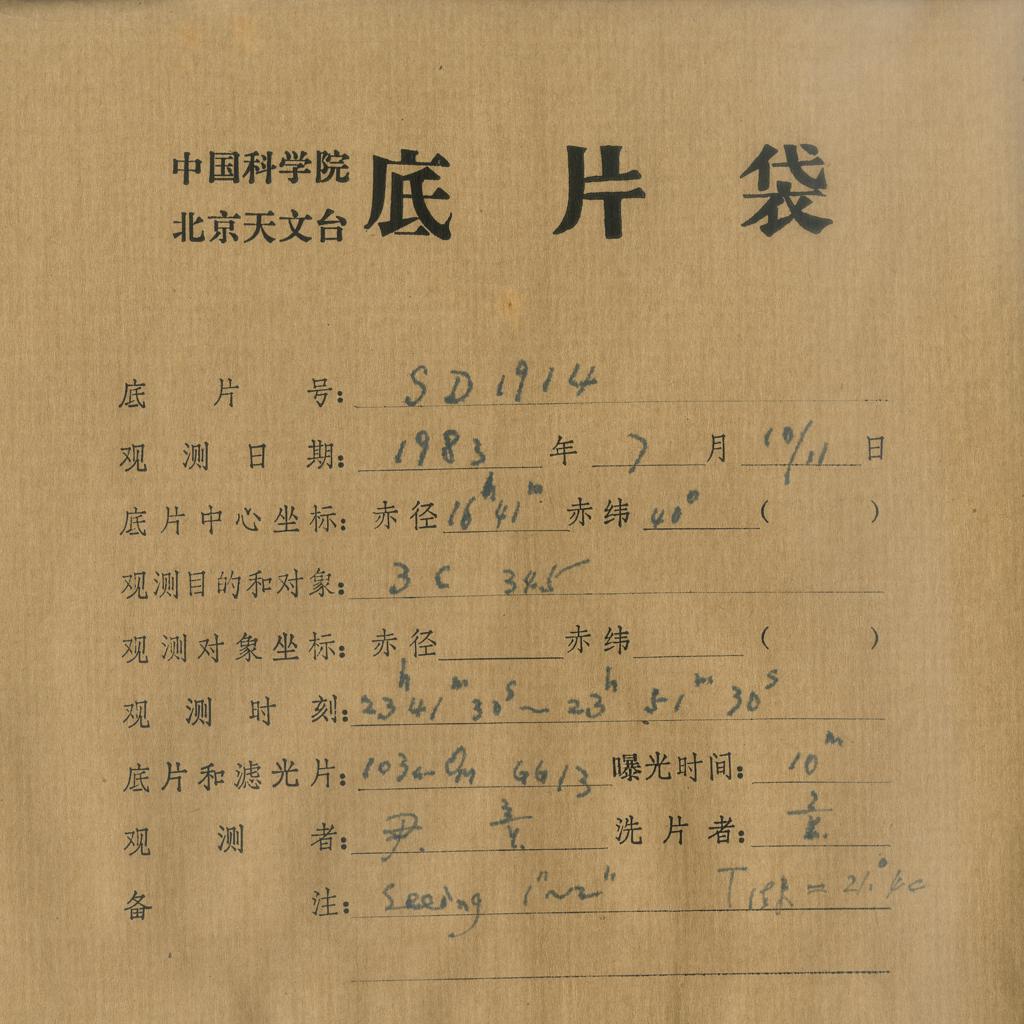 中国科学院
北京天文台
底片袋
底片号: SD1914
观测日期: 1983年 7月 10/11日
底片中心坐标: 赤径 16h 41m 赤纬 40° ( )
观测目的和对象: 3C 345
观测对象坐标: 赤径 赤纬 ( )
观测时刻: 23h 41m 30s ~ 23h 51m 30s
底片和滤光片: 103a-O GG13 曝光时间: 10m
观测者: 尹. 洗片者:
备注: Seeing 1"~2" T = 21.°